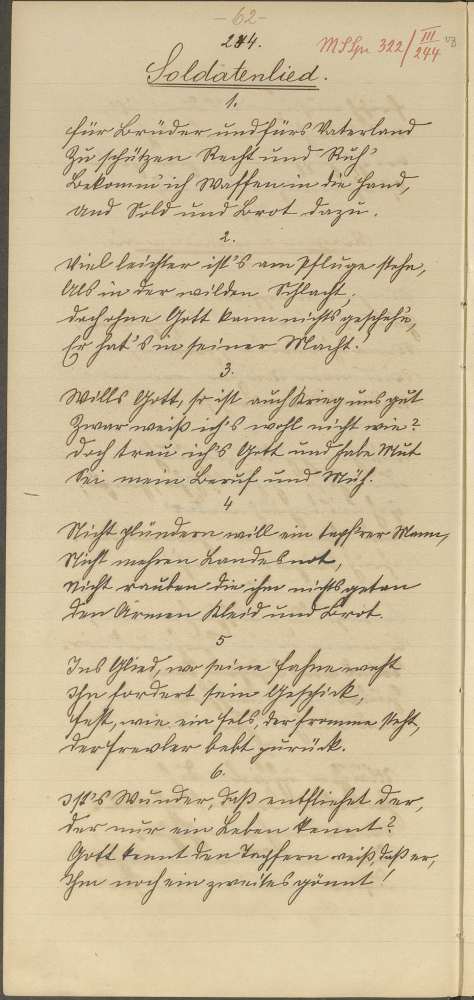 -62-
244.
MSSgr 322/III 244
Soldatenlied.
1.
Für Brüder und fürs Vaterland
Zu schützen Recht und Ruh'
Bekomm' ich Waffen in die Hand,
Und Sold und Brot dazu.
2.
Viel leichter ist's am Pfluge stehn,
Als in der wilden Schlacht,
doch ohne Gott kann nichts gescheh'n,
Er hat's in seiner Macht!
3.
Wills Gott, so ist auch Krieg uns gut
Zwar weiß ich's wohl nicht wie?
doch trau ich's Gott und habe Mut
Bei mein Beruf und Müh.
4
Nicht plündern will ein tapfrer Mann,
Nicht mehren Landesnot,
Nicht rauben die ihm nichts getan
Den Armen Kleid und Brot.
5
Ins Glied, wo seine Fahne weht
Ihn fordert sein Geschick,
Fest, wie ein Fels, der fromme steht,
der Frevler bebt zurück.
6.
Ist's Wunder, daß entfliehet der,
der nur ein Leben kennt?
Gott kennt den Tapfern weiß, daß er,
Ihm noch ein zweites gönnt!